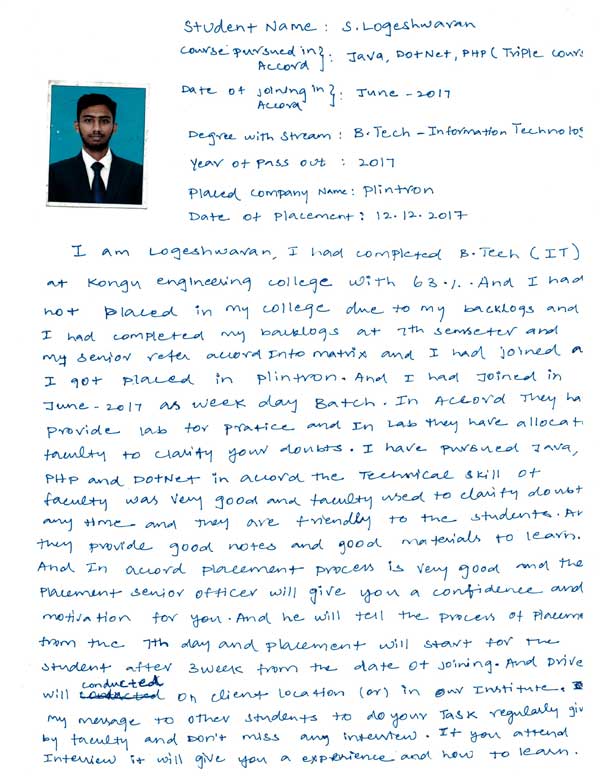 Student Name : S. Logeshwaran
Course pursued in Accord } : Java, DotNet, PHP ( Triple Cours
Date of joining in Accord } : June - 2017
Degree with Stream : B.Tech - Information Technolog
Year of Pass out : 2017
Placed Company Name : Plintron
Date of Placement : 12.12.2017
I am Logeshwaran, I had completed B.Tech (IT)
at Kongu engineering college with 63 %. And I had
not placed in my college due to my backlogs and
I had completed my backlogs at 7th semseter and
my senior refer accord Into matrix and I had joined a
I got placed in plintron. And I had Joined in
June - 2017 as week day Batch. In Accord They ha
Provide lab for pratice and In Lab they have allocat
faculty to clarity your doubts. I have pursued Java,
PHP and DotNet in accord the Technical skill of
faculty was very good and faculty used to clarity doubt
any time and they are friendly to the students. An
they provide good notes and good materials to learn.
And In accord placement process is very good and the
Placement senior officer will give you a confidence and
motivation for you. And he will tell the process of Placeme
from the 7th day and placement will start for the
student after 3week from the date of joining. And Drive
will conducted on client location (or) in our Institute.
my message to other students to do your Task regularly giv
by faculty and Don't miss any interview. If you attend
Interview it will give you a experience and how to learn.